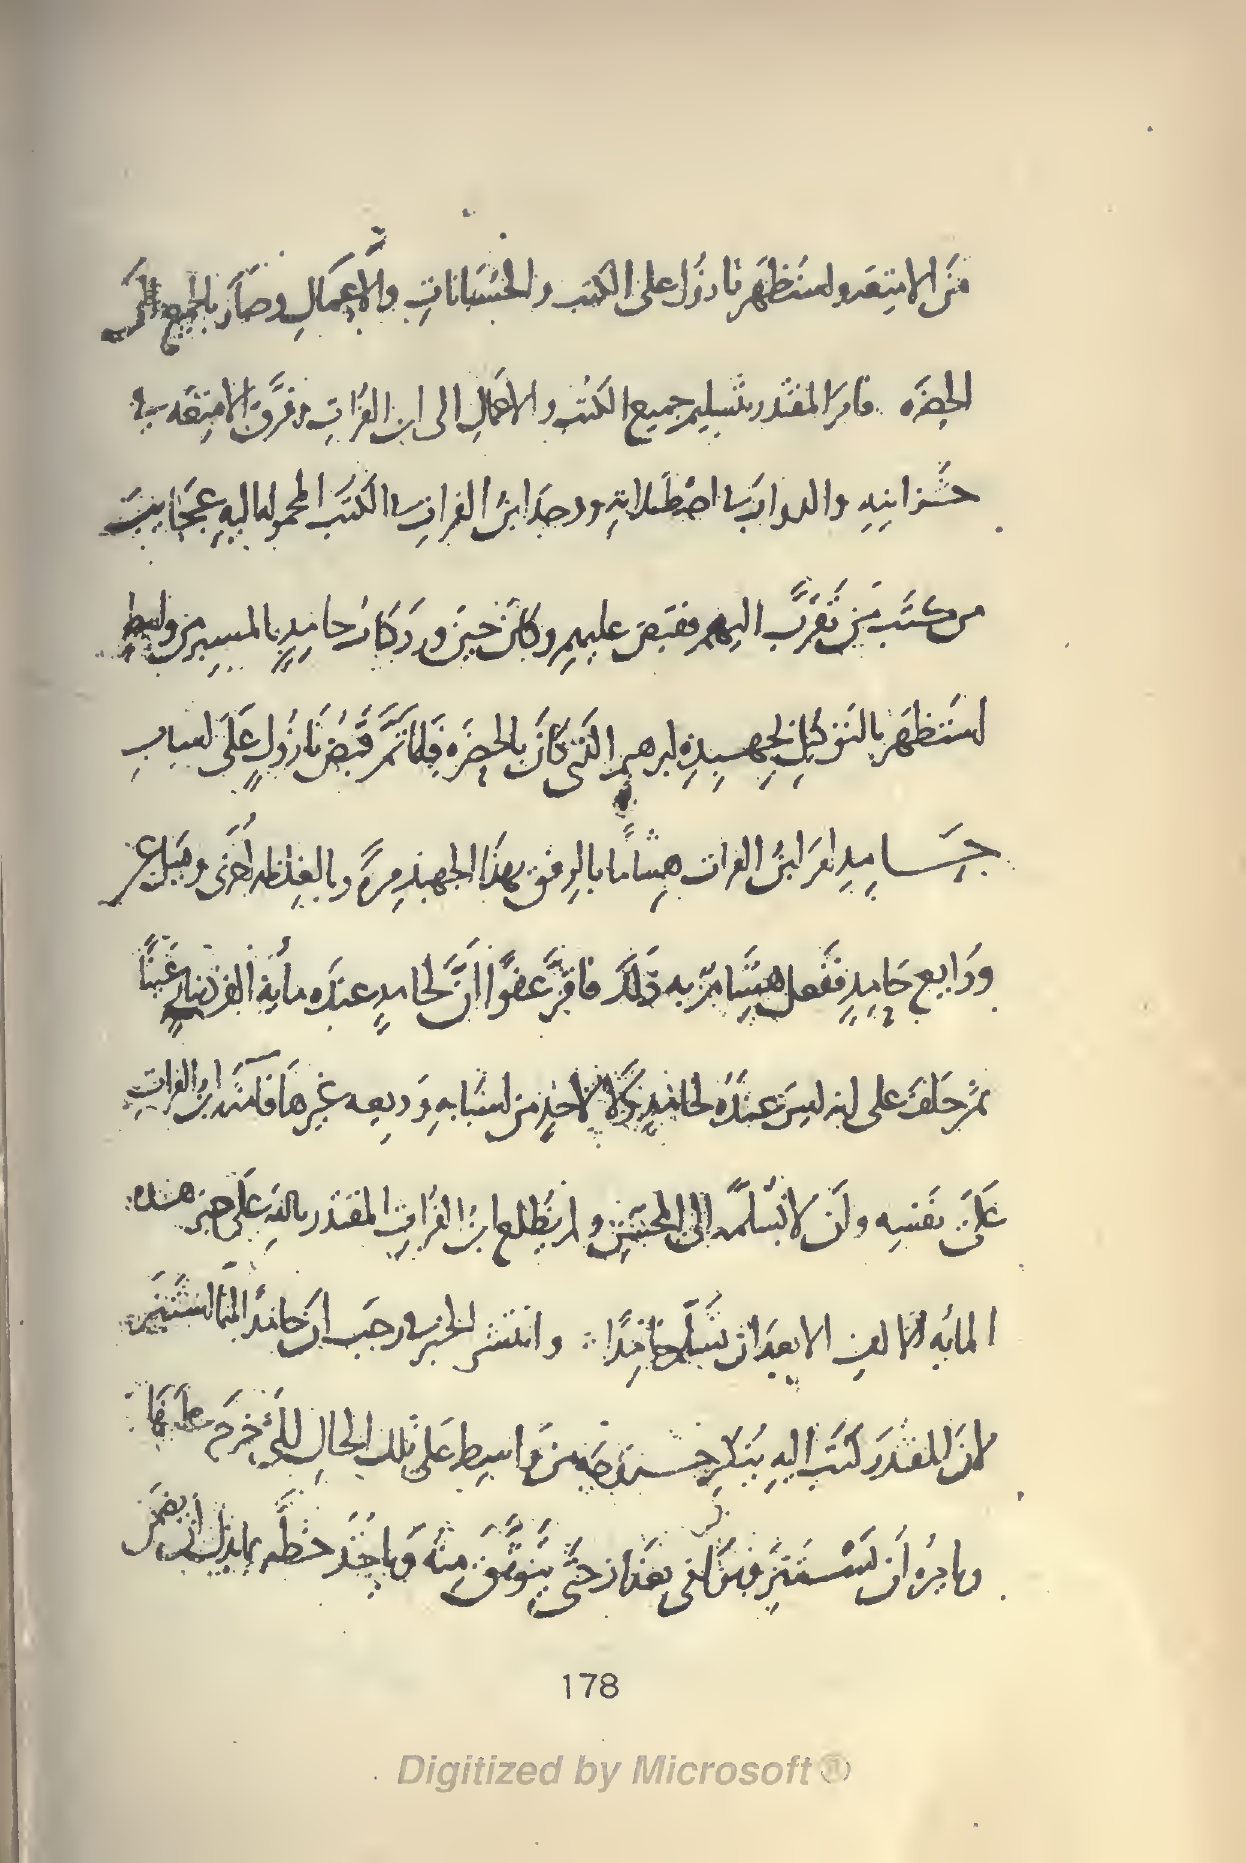 من الامتعه واستظهر نازوك على الكتب والحسبانات والاعمال وصار بالجميع الى
الحضره فامر المقتدر بتسليم جميع الكتب والاعمال الى ابن الفرات وفرق الامتعه في
خزاينه والدواب في اصطبلاته ووجد ابن الفرات في الكتب المحموله اليه عجايب
من كتب من تقرب اليهم فقبض عليهم وكان حين ورد كتاب حامد بالمسير من واسط
استظهر بالتوكيل بجهبذه ابرهيم الذى كان بالحضره فلما تم قبض نازوك على اسباب
حامد امر ابن الفرات هشاما بالرفق بهذا الجهبذ مرة وبالغلظه اخرى وسل عن
ودايع حامد ففعل هشام به ذلك فاقر عفوا ان لحامد عنده مايه الف دينار عينا
ثم حلف على انه ليس عنده لحامد ولا لاحد من اسبابه وديعه غيرها فامنه ابن الفرات
على نفسه وان لا يسلمه الى المحسن ولم يطلع ابن الفرات المقتدر بالله على خبر هذه
المايه الالف الا بعد ان تسلم حامدا وانتشر الخبر في رجب ان حامدا انما استتر
لان المقتدر كتب اليه ينكر خروجه من واسط على تلك الحال التى خرج عليها
ويامره ان يستتر فى بغداد حتى يتوثق منه وياخذ خطه بما بذل ان يضمن
178
Digitized by Microsoft®